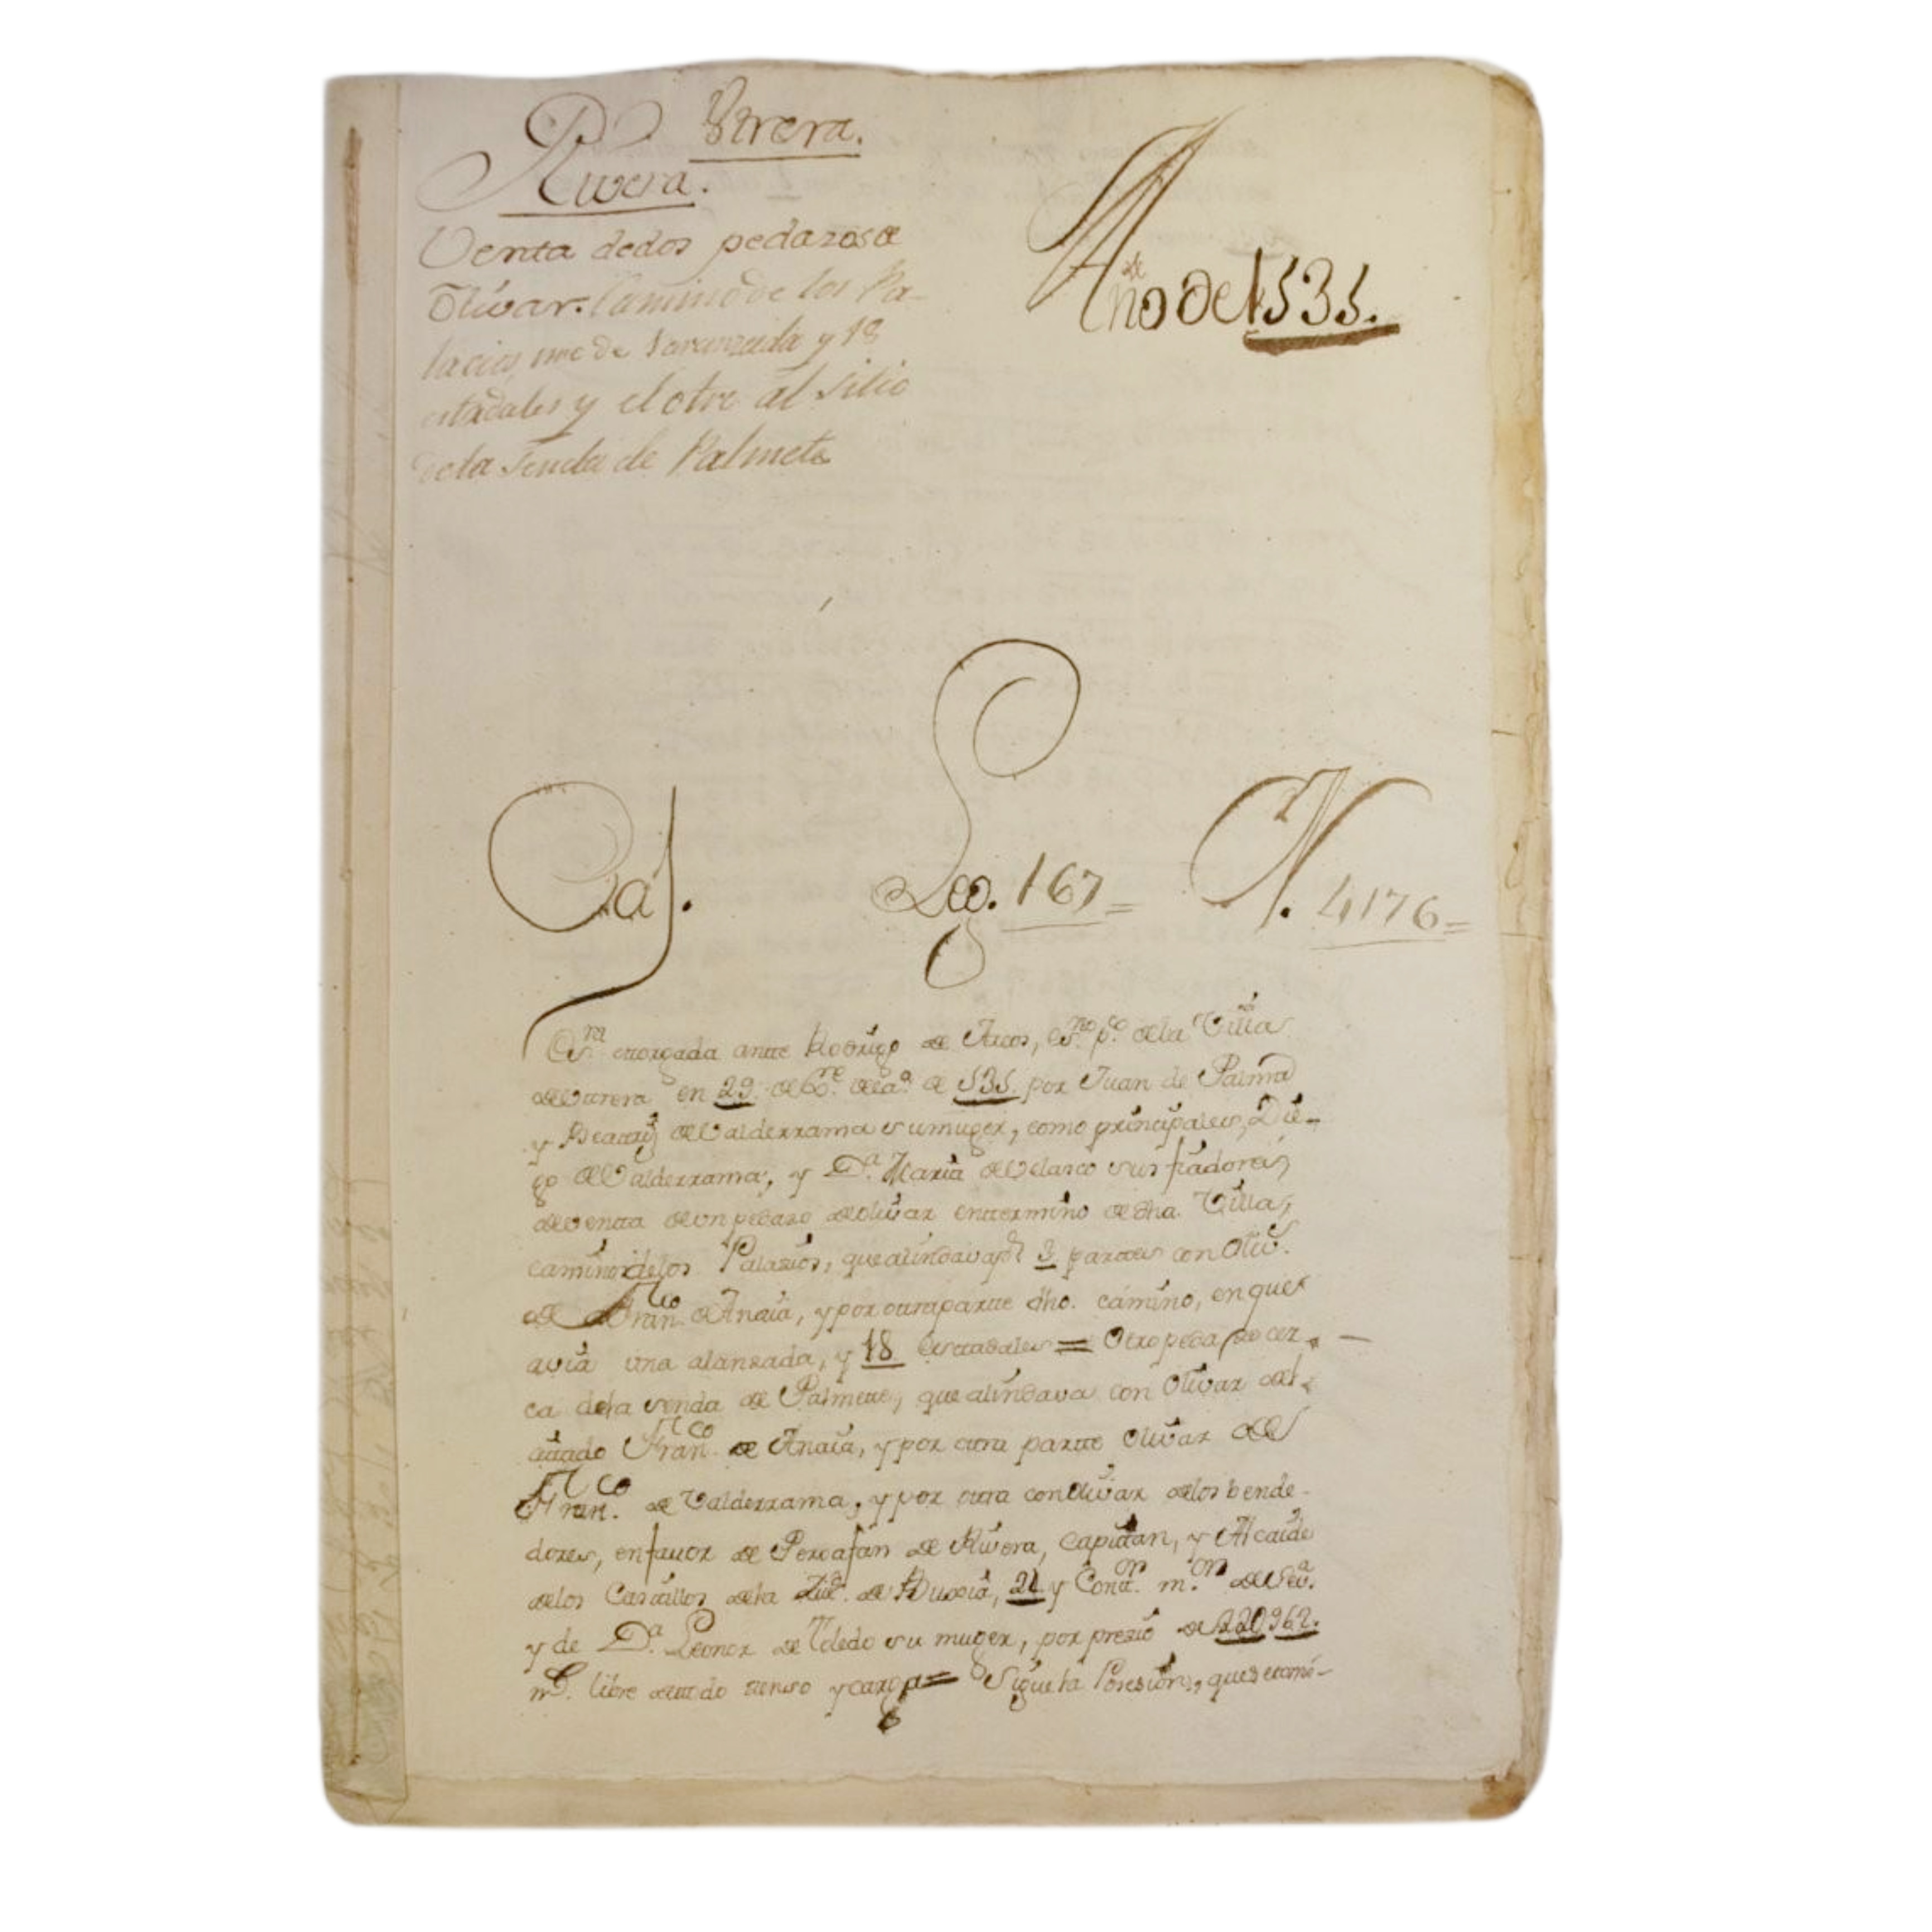 Utrera.
Rivera.
Venta dedos pedazos de
Olivar. Camino de los Pa-
lacios, uno de 1 aranzada y 18
estadales y el otro al sitio
de la senda de Palmete
Año de 1535.
Caj. Leg. 167= N. 4176=
Es.ra otorgada antte Rodrigo de Arcos, Es.no p.co de la Villa
de Utrera en 29 de d.e a.o de 535 por Juan de Palma
y Beatriz de Valderrama su muger, como principales, Die-
go de Valderrama, y D.a Maria de Velasco sus fiadores,
de venta de un pedazo de olivar en termino de dha. Villa,
camino de los Palazios, que alindava p.r 3 partes con Oliv.
de Fran.co de Anaia, y por otra partte dho. camino, en que
avia una alanzada, y 18 Estadales = Otro pedazo cer-
ca de la senda de Palmete, que alindava con Olivar del
citado Fran.co de Anaia, y por otra partte Olivar de
Fran.co de Valderrama, y por otra con Olivar de los bende-
dores, en favor de Perafan de Rivera, Capitan, y Alcaide
de los Castillos de la Ziu.d de Buxia, 24 y Cont.or m.or de Sev.a
y de D.a Leonor de Toledo su muger, por prezio de 220962.
mrs. libre de todo zenso y carga = Sigue la Posesion, que se tomó-